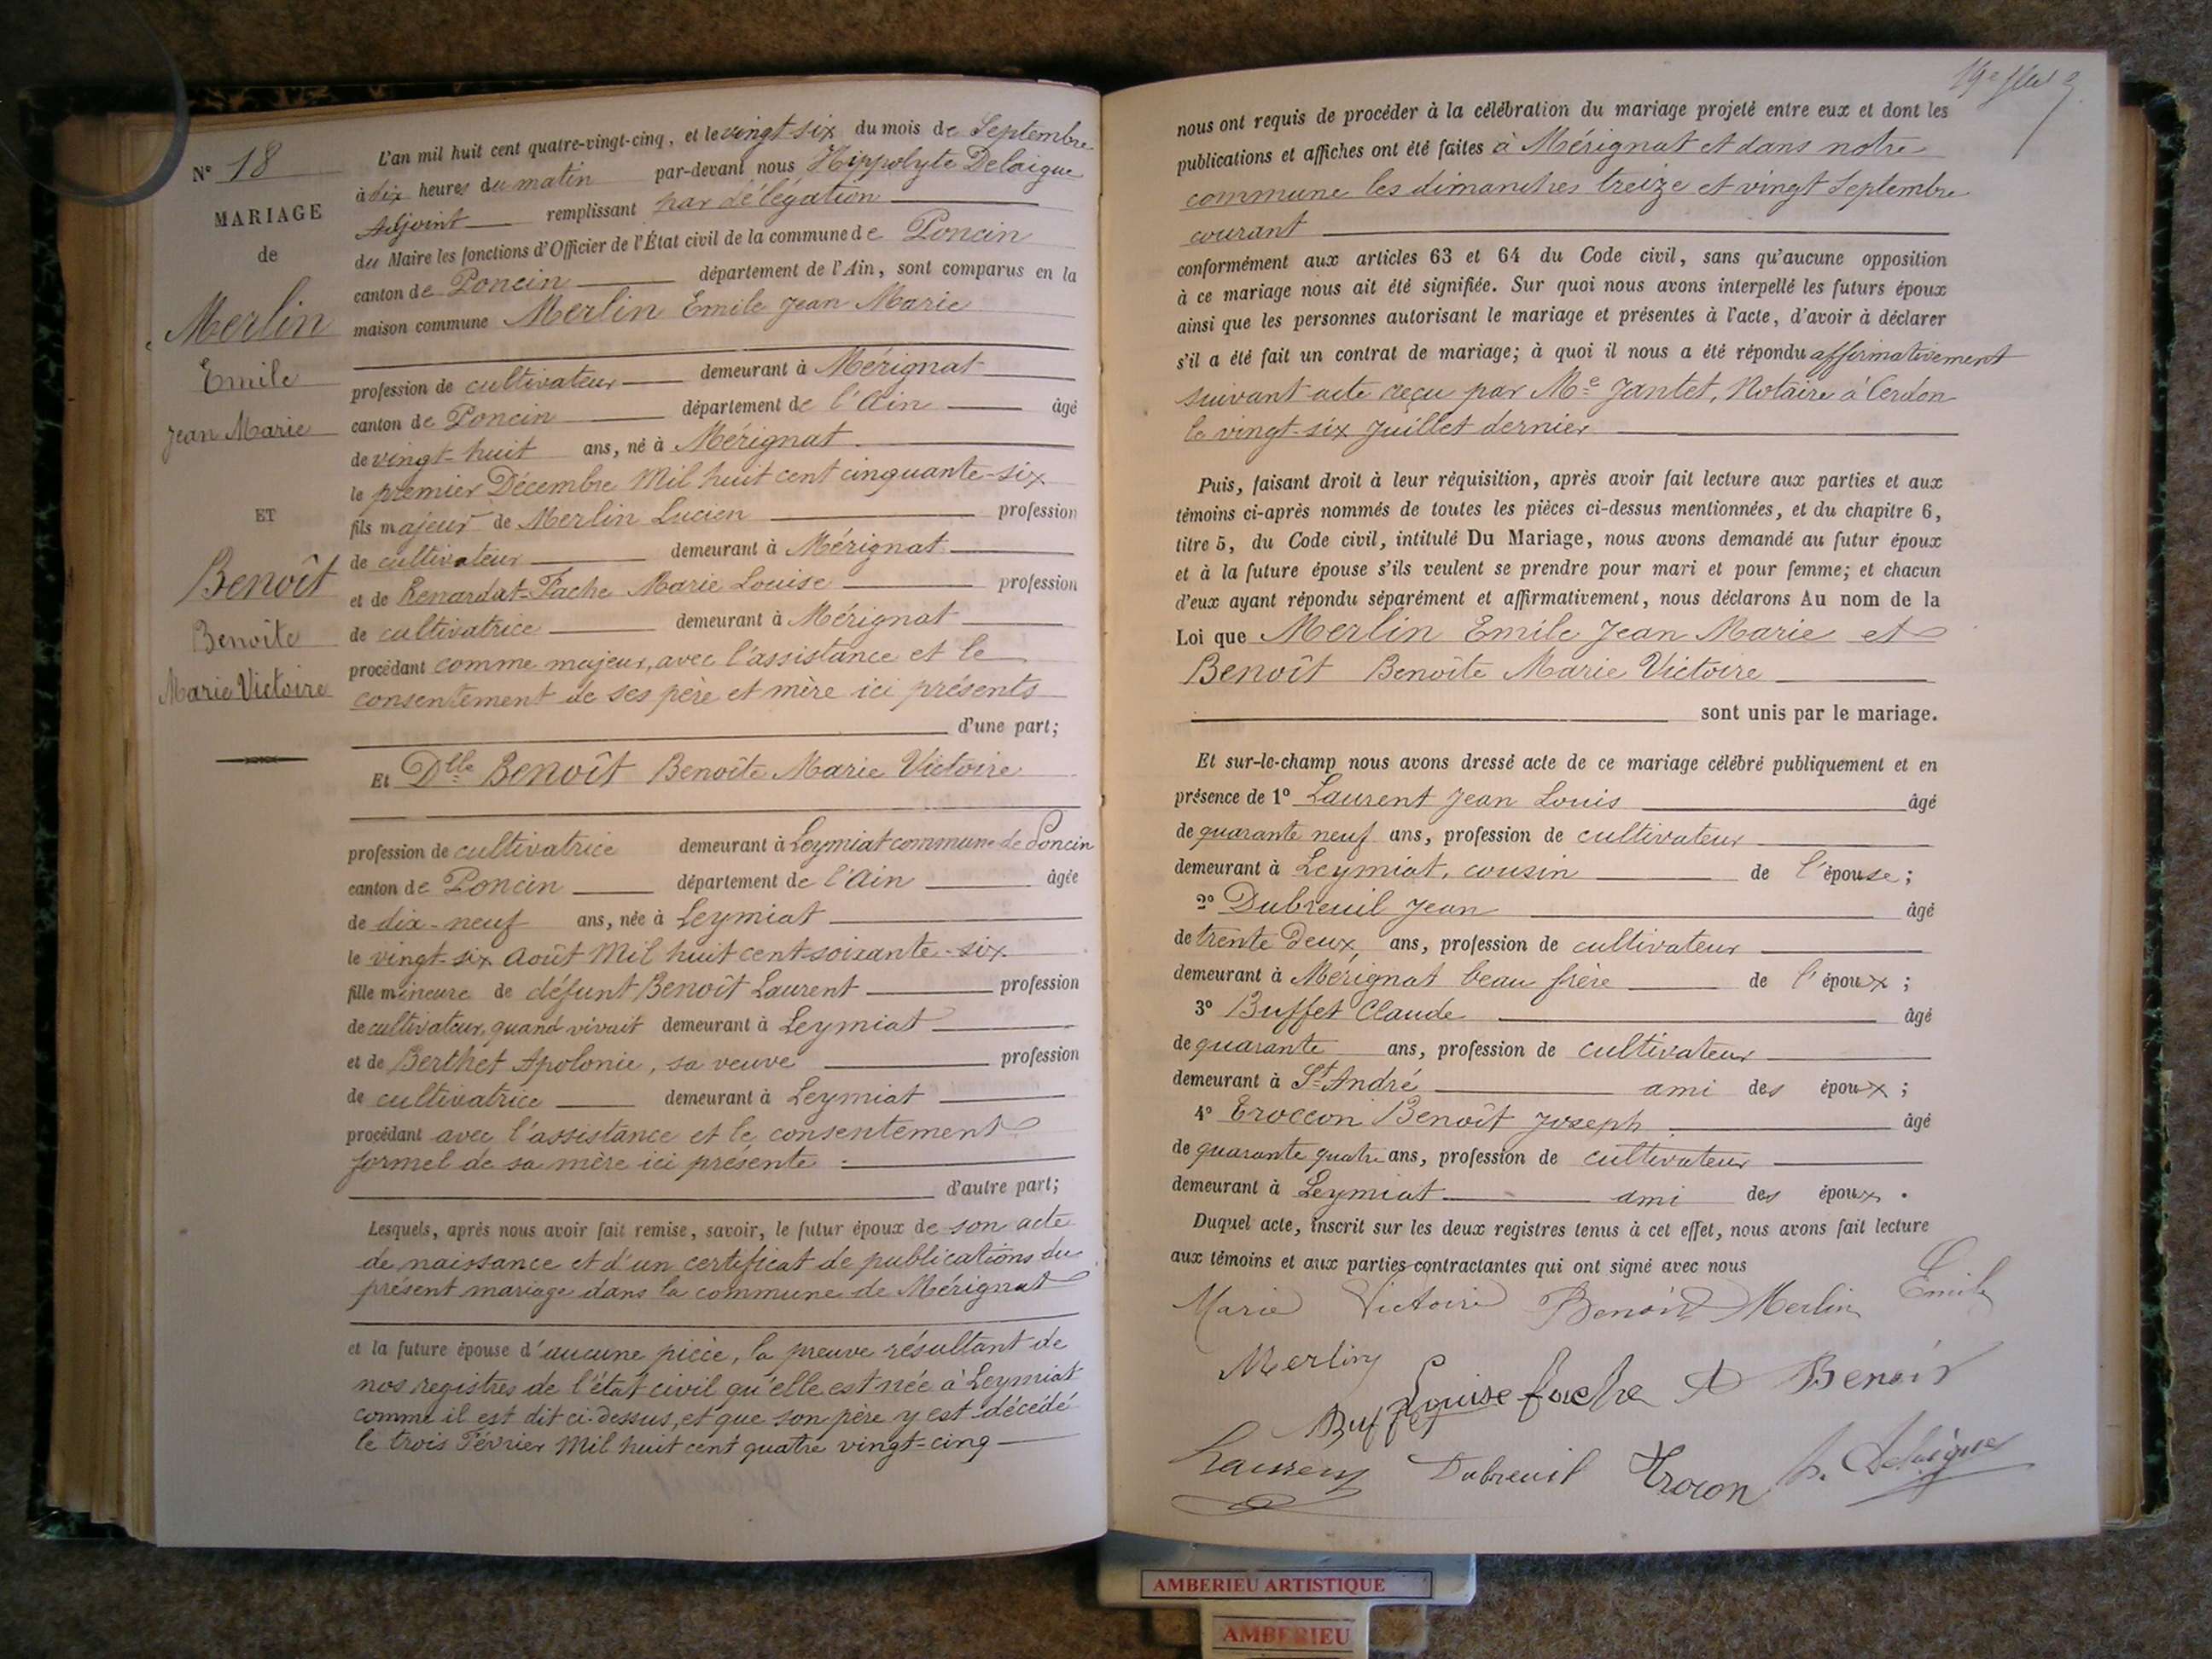 N° 18
MARIAGE
de
Merlin
Emile
Jean Marie
ET
Benoît
Benoîte
Marie Victoire
L'an mil huit cent quatre-vingt-cinq, et le vingt six du mois de Septembre
à dix heures du matin par-devant nous Hippolyte Delaigue
Adjoint remplissant par délégation
du Maire les fonctions d'Officier de l'État civil de la commune de Poncin
canton de Poncin département de l'Ain, sont comparus en la
maison commune Merlin Emile Jean Marie
profession de cultivateur demeurant à Mérignat
canton de Poncin département de l'Ain âgé
de vingt-huit ans, né à Mérignat
le premier Décembre Mil huit cent cinquante-six
fils majeur de Merlin Lucien profession
de cultivateur demeurant à Mérignat
et de Renardat-Fache Marie Louise profession
de cultivatrice demeurant à Mérignat
procédant comme majeur, avec l'assistance et le
consentement de ses père et mère ici présents
d'une part;
Et Dlle Benoît Benoîte Marie Victoire
profession de cultivatrice demeurant à Leymiat commune de Poncin
canton de Poncin département de l'Ain âgée
de dix-neuf ans, née à Leymiat
le vingt-six Août Mil huit cent soixante-six
fille mineure de défunt Benoît Laurent profession
de cultivateur, quand vivait demeurant à Leymiat
et de Berthet Apolonie, sa veuve profession
de cultivatrice demeurant à Leymiat
procédant avec l'assistance et le consentement
formel de sa mère ici présente
d'autre part;
Lesquels, après nous avoir fait remise, savoir, le futur époux de son acte
de naissance et d'un certificat de publications du
présent mariage dans la commune de Mérignat
et la future épouse d'aucune pièce, la preuve résultant de
nos registres de l'état civil qu'elle est née à Leymiat
comme il est dit ci-dessus, et que son père y est décédé
le trois Février Mil huit cent quatre vingt-cinq
nous ont requis de procéder à la célébration du mariage projeté entre eux et dont les
publications et affiches ont été faites à Mérignat et dans notre
commune les dimanches treize et vingt Septembre
courant
conformément aux articles 63 et 64 du Code civil, sans qu'aucune opposition
à ce mariage nous ait été signifiée. Sur quoi nous avons interpellé les futurs époux
ainsi que les personnes autorisant le mariage et présentes à l'acte, d'avoir à déclarer
s'il a été fait un contrat de mariage; à quoi il nous a été répondu affirmativement
suivant acte reçu par Me Jantet, Notaire à Cerdon
le vingt-six Juillet dernier
Puis, faisant droit à leur réquisition, après avoir fait lecture aux parties et aux
témoins ci-après nommés de toutes les pièces ci-dessus mentionnées, et du chapitre 6,
titre 5, du Code civil, intitulé Du Mariage, nous avons demandé au futur époux
et à la future épouse s'ils veulent se prendre pour mari et pour femme; et chacun
d'eux ayant répondu séparément et affirmativement, nous déclarons Au nom de la
Loi que Merlin Emile Jean Marie et
Benoît Benoîte Marie Victoire
sont unis par le mariage.
Et sur-le-champ nous avons dressé acte de ce mariage célébré publiquement et en
présence de 1° Laurent Jean Louis âgé
de quarante neuf ans, profession de cultivateur
demeurant à Leymiat, cousin de l'épouse;
2° Dubreuil Jean âgé
de trente Deux ans, profession de cultivateur
demeurant à Mérignat beau frère de l'époux;
3° Buffet Claude âgé
de quarante ans, profession de cultivateur
demeurant à St André ami des époux;
4° Troccon Benoît Joseph âgé
de quarante quatre ans, profession de cultivateur
demeurant à Leymiat ami des époux.
Duquel acte, inscrit sur les deux registres tenus à cet effet, nous avons fait lecture
aux témoins et aux parties contractantes qui ont signé avec nous
Marie Victoire Benoit Merlin Emile
Merlin Louise fache A Benoit
Buffet
Laurent Dubreuil Trocon h. Delaigue
AMBERIEU ARTISTIQUE
AMBERIEU